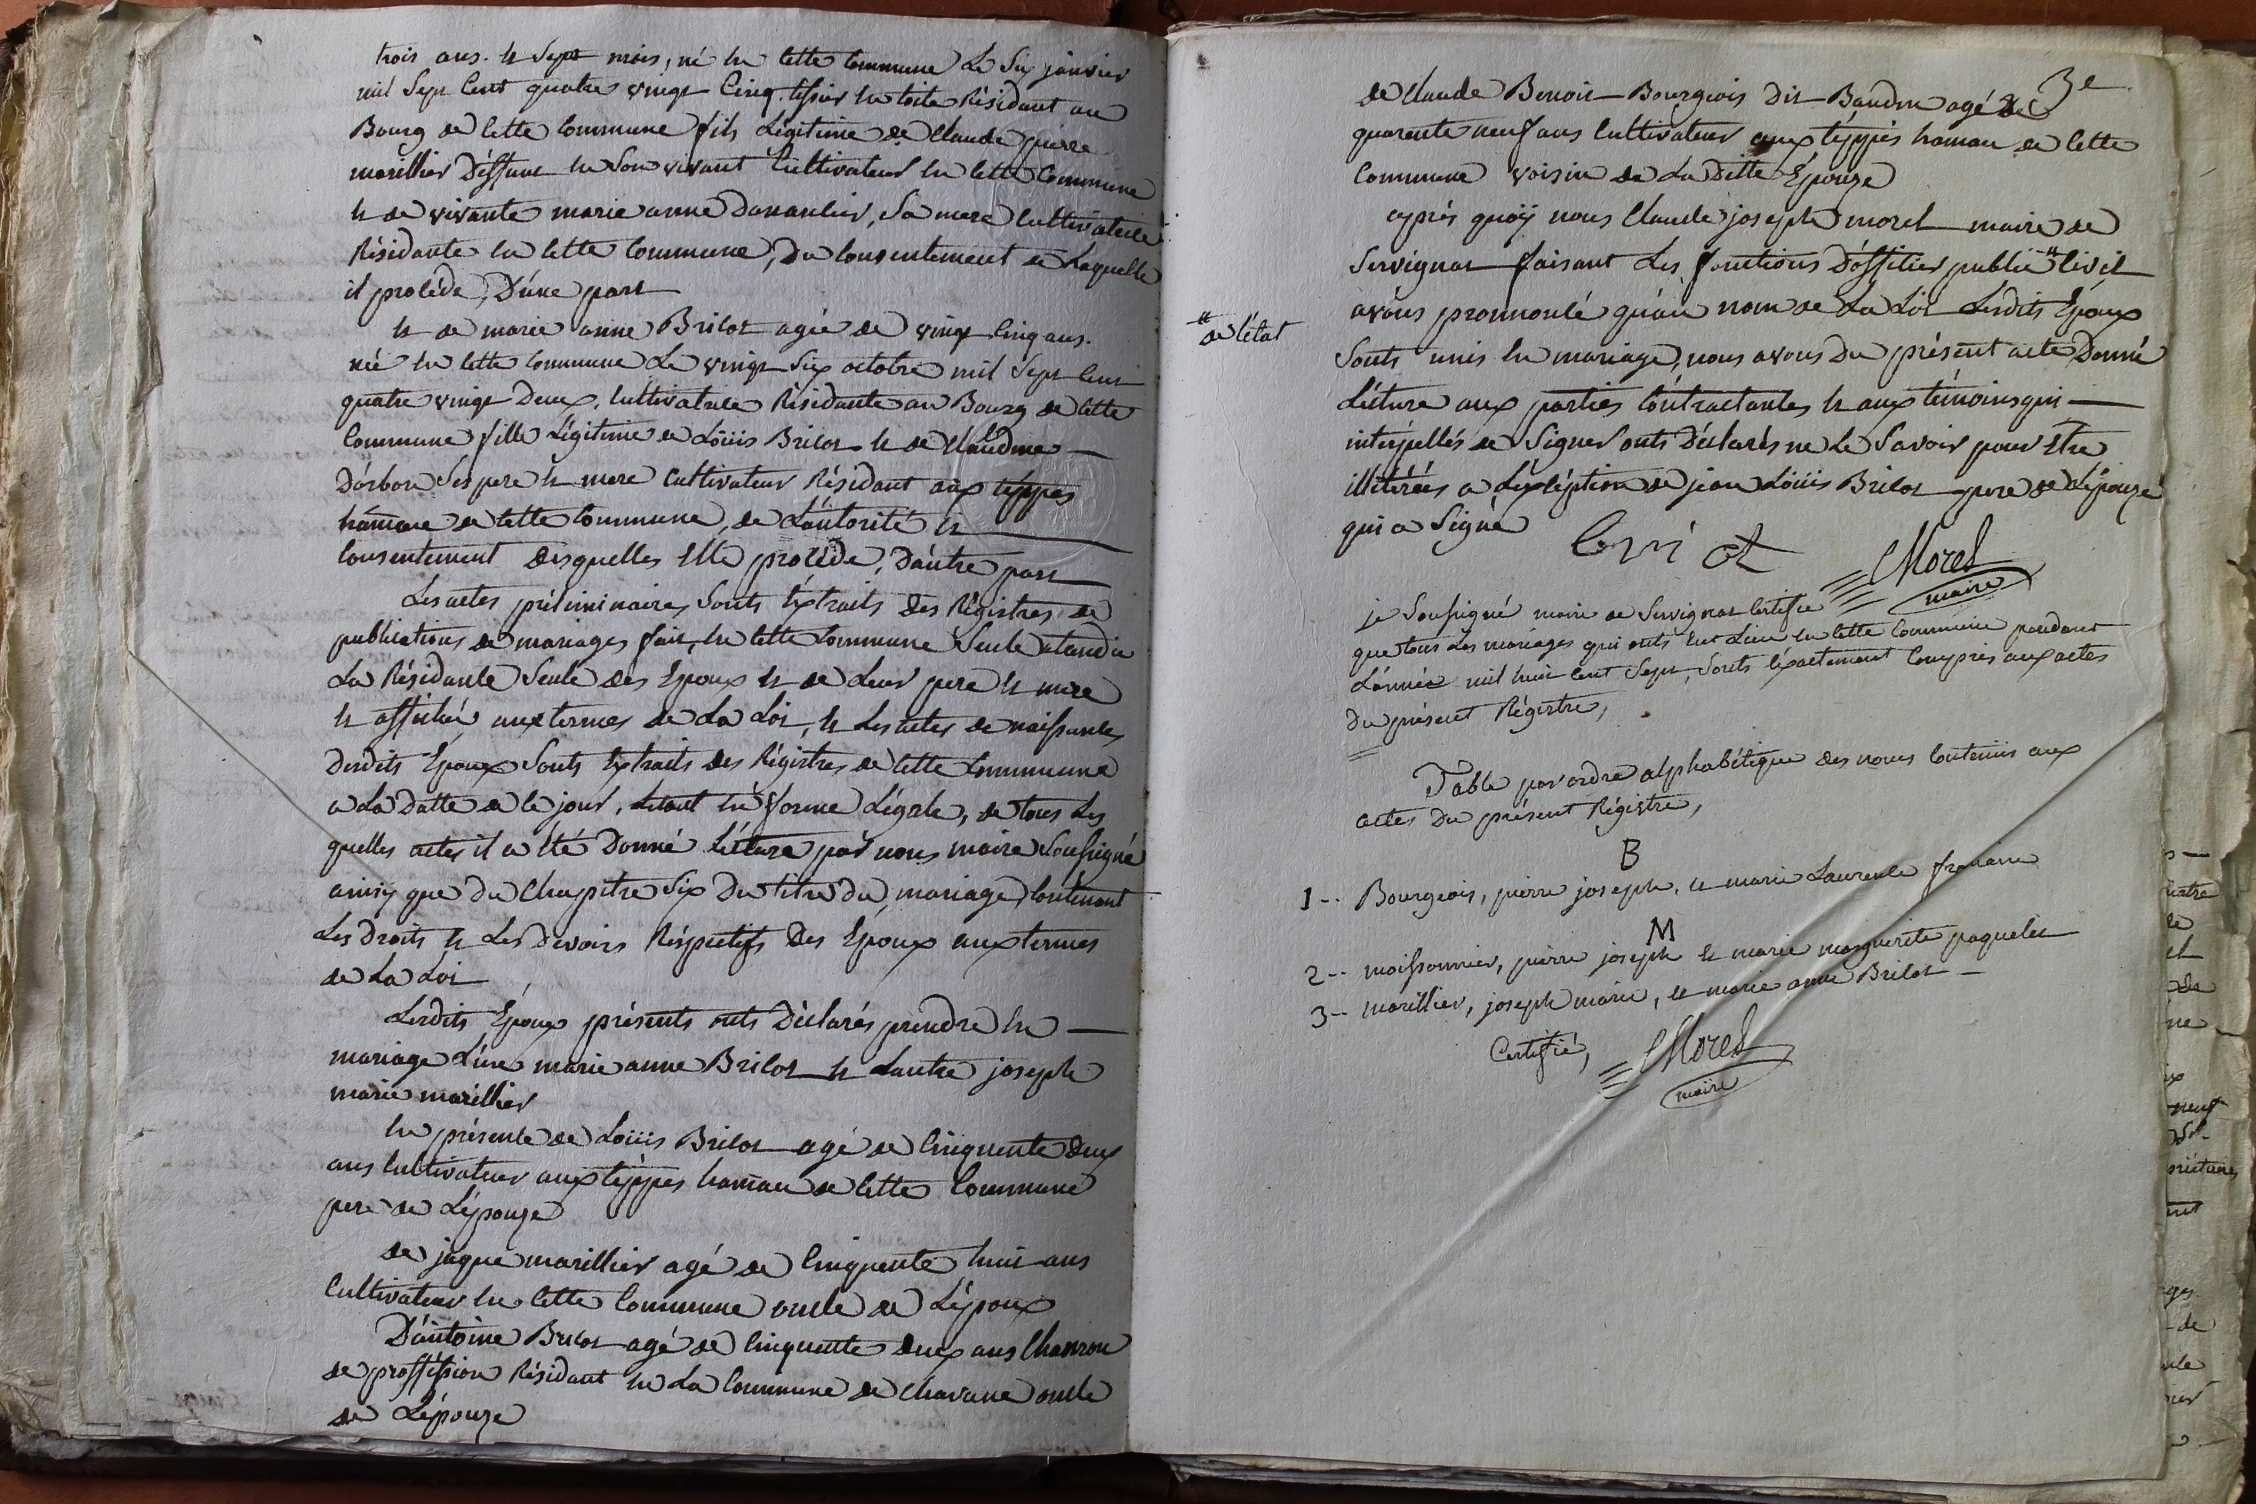 trois ans. et sept mois, né en cette commune Le six janvier
mil sept cent quatre vingt cinq. tissier en toile Résidant au
Bourg de cette commune fils Légitime de Claude pierre
marillier Déffunt en son vivant Cultivateur en cette commune
et de vivante marie anne Dananchier, sa mere Cultivatrice
Résidante en cette commune, Du consentement de Laquelle
il procéde, D'une part
et de marie anne Bricot agée de vingt cinq ans.
née en cette commune Le vingt six octobre mil sept cent
quatre vingt Deux, cultivatrice Résidante au Bourg de cette
commune fille Légitime de Loüis Bricot et de Claudine
Dárbon ses pere et mere cultivateur Résidant aux téppes
hamau de cette commune, de L'autorité et
consentement desquelles elle procéde, D'autre part
Les actes préliminaires sonts Extraits des Régistres de
publications de mariages fait, en cette commune seule atandu
La Résidance seule des Epoux et de Leur pere et mere
et affiché aux termes de La Loi, et Les actes de naissances
Desdits Epoux sonts Extraits des Régistres de cette commune
a La Datte de ce jour, Letout en forme Légale, de tous Les
quelles actes il a été Donné Lécture par nous maire soussigné
ainsy que du Chapitre six Du titre du mariage contenant
Les Droits et Les Devoirs Réspectifs Des Epoux aux termes
de La Loi
Lesdits Epoux présents onts Déclarés prendre en
mariage L'une marie anne Bricot et Lautre joseph
marie marillier
en présence de Loüis Bricot agé de cinquente deux
ans cultivateur aux téppes hamau de cette commune
pere de L'épouze
de jaque marillier agé de cinquente huit ans
cultivateur en cette commune oncle de L'époux
D'antoine Bricot agé de cinquente deux ans Charron
de proffission Résidant en La commune de chavane oncle
de L'épouze
3e
de Claude Benoit Bourgeois Dit Baudin agé de
quarente neuf ans cultivateur aux téppes hamau de cette
commune voisin de La ditte Epouze
aprés quoÿ nous Claude joseph morel maire de
Servignat faisant Les fonctions D'offitier public # civil
avons prononcé qu'au nom de La Loi Lesdits Epoux
# de L'état
sonts unis en mariage, nous avons Du présent acte Donné
Lécture aux parties contractantes et aux témoins qui
intérpellés de signer onts Déclarés ne Le savoir pour étre
illitérées a L'exception de jean Loüis Bricot pere de L'épouze
qui a signé
Morel
maire
je soussigné maire de Servignat certifie
que tous Les mariages qui onts eut Lieu en cette commune pandant
L'année mil huit cent sept, sonts éxactement compris aux actes
Du présent Régistre,
Table par ordre alphabétique des noms contenüs aux
actes Du présent Régistre,
B
1-- Bourgeois, pierre joseph, et marie Laurence franaire
M
2-- moissonnier, pierre joseph et marie marguerite paquelet
3-- marillier, joseph marie, et marie anne Bricot
Certifié,
Morel
maire